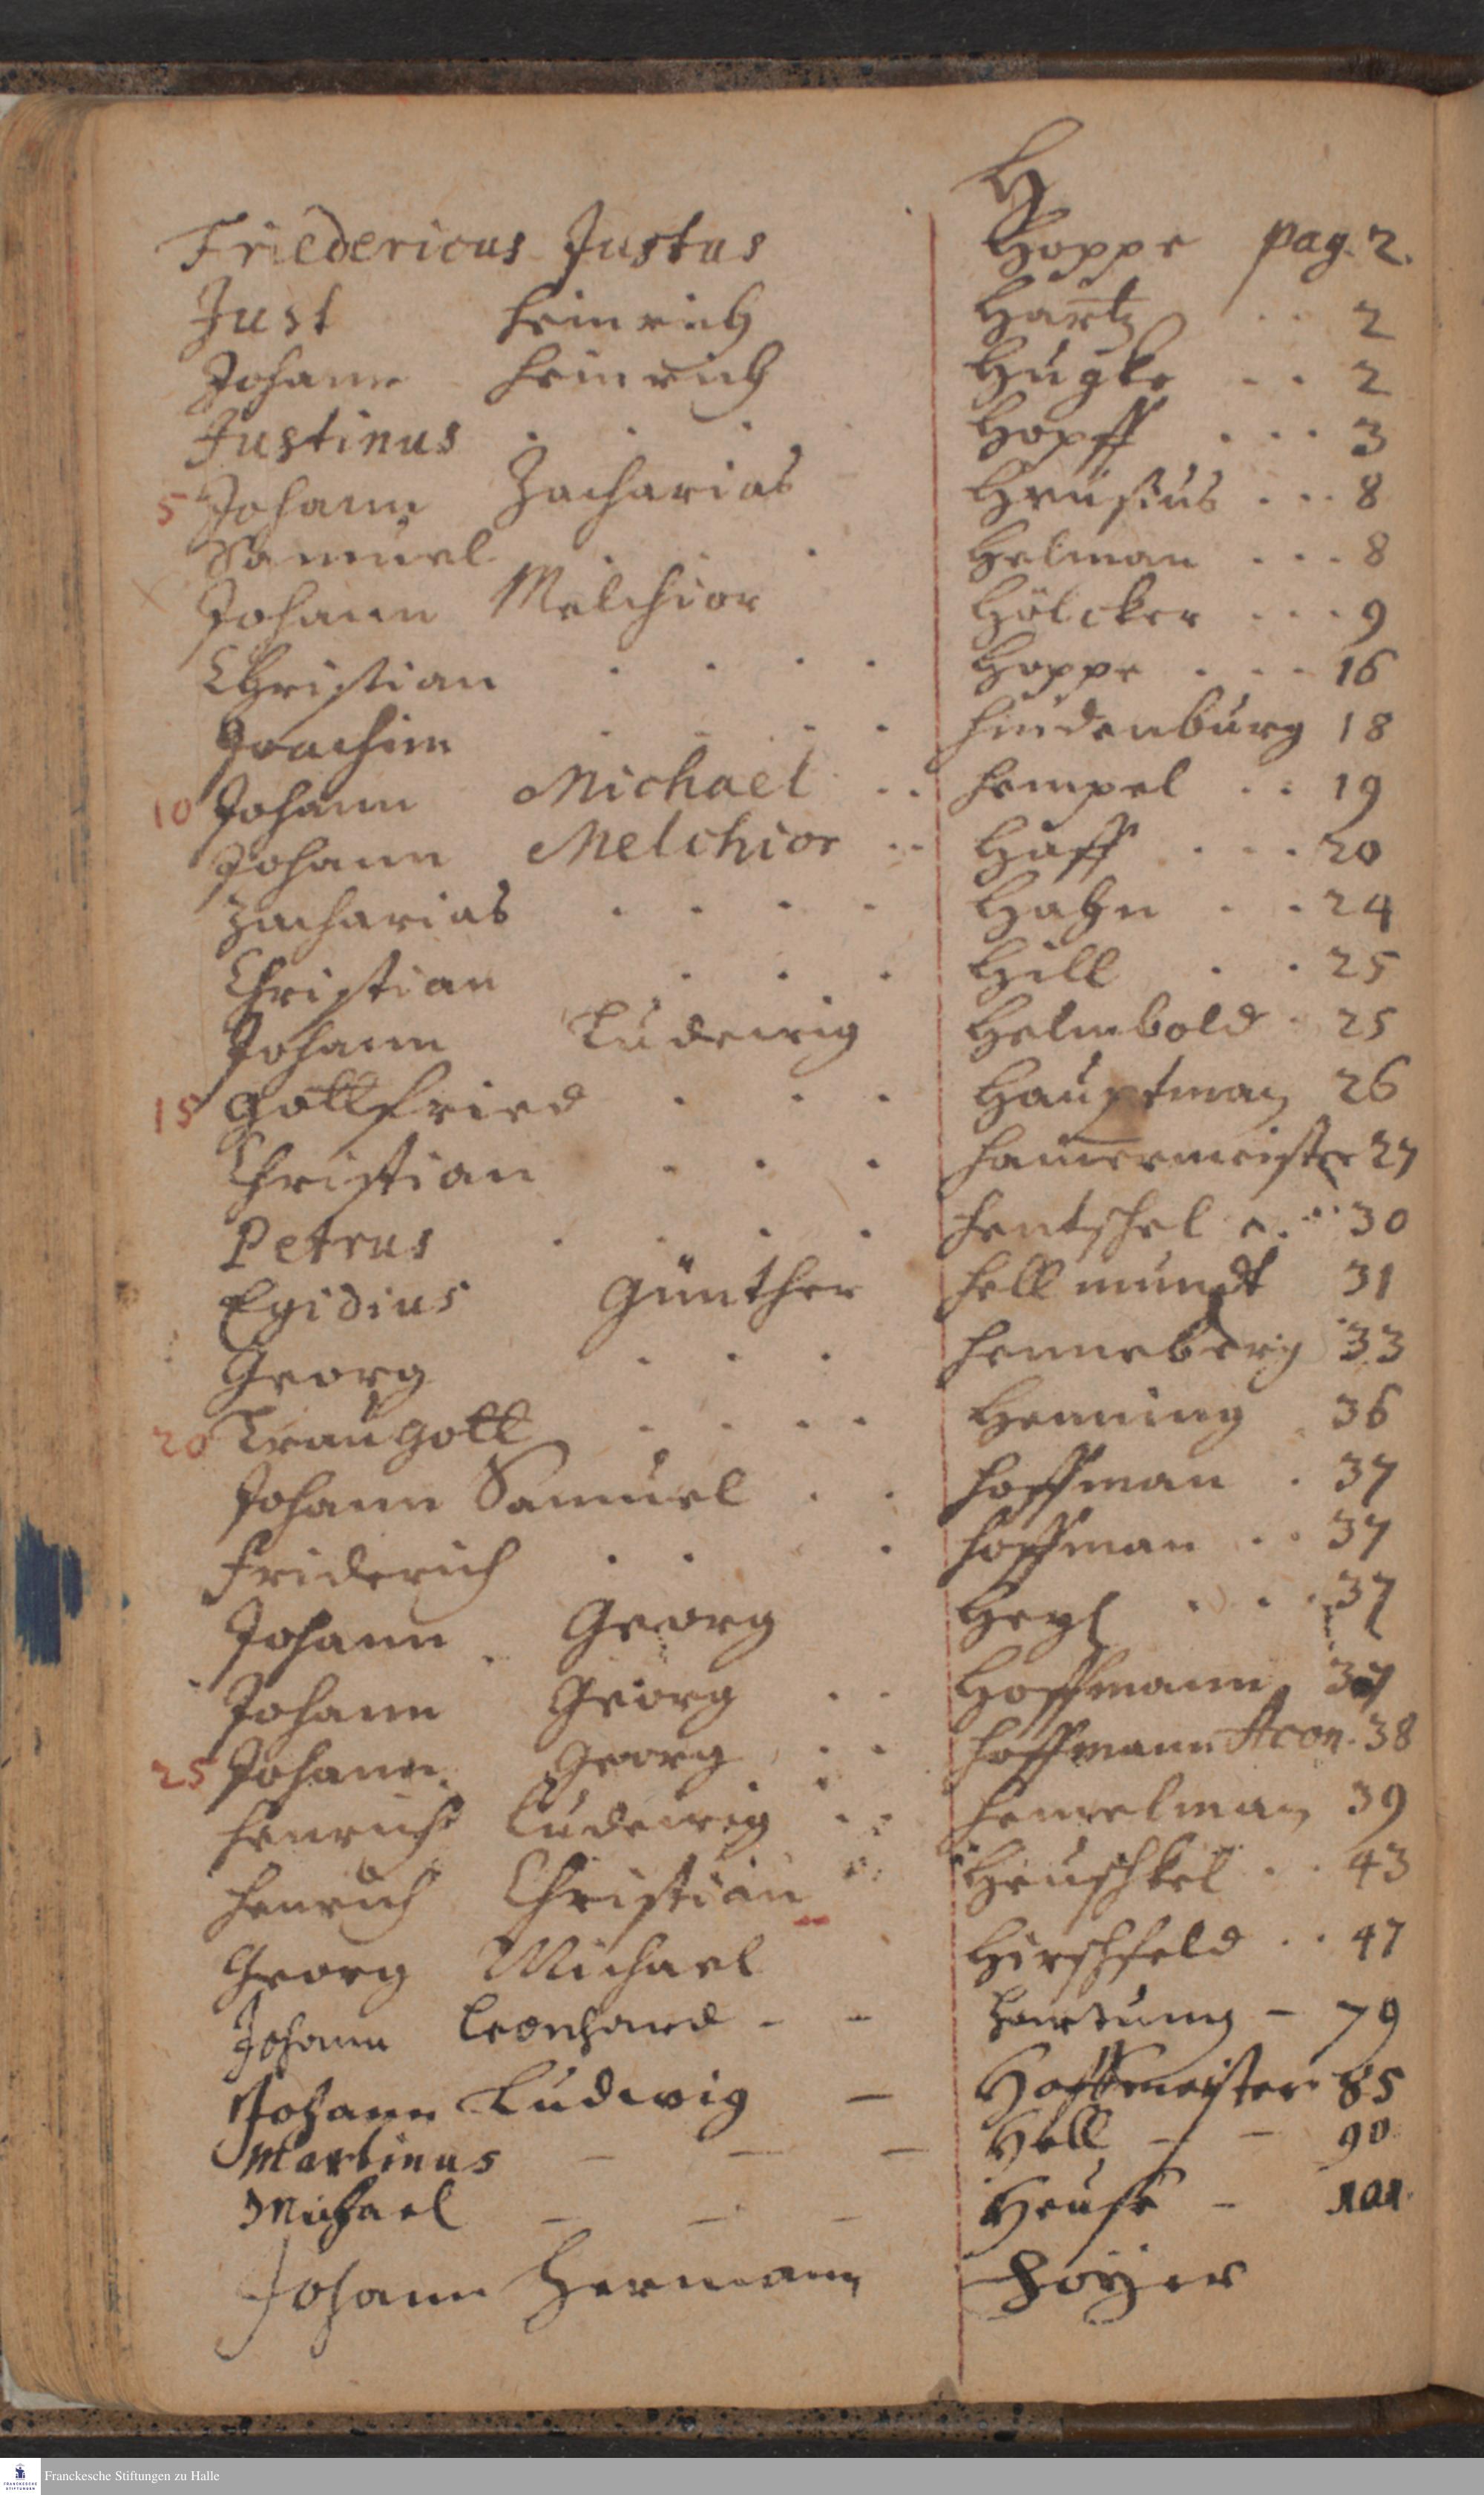 H
Friedericus Justus Hoppe pag. 2.
Just Heinrich Hartz . . 2
Johann Heinrich Hugke . . 2
Justinus . . . . Hopff . . . 3
5 Johann Zacharias Heusius . . . 8
Samuel . . . Helman . . . 8
Johann Melchior Hölcker . . . 9
Christian . . . . Hoppe . . . 16
Joachim . . . . Hindenburg 18
10 Johann Michael . . Hempel . . 19
Johann Melchior . . Haff . . . 20
Zacharias . . . . Hahn . . 24
Christian . . . Hill . . 25
Johann Ludewig Helmbold . 25
15 Gottfried . . . Hauptman 26
Christian . . . Hamermeister 27
Petrus . . . . Hentschel . . 30
Egidius Günther Hellmundt 31
Georg . . . Henneberg 33
20 Traugott . . . . Henning . 36
Johann Samuel . . Hoffman . 37
Friderich . . . Hoffman . . 37
Johann Georg Heyl . . . 37
Johann Georg . . Hoffmann 37
25 Johann Georg . . Hoffmann 38
Henrich Ludewig . . 39
Henrich Christian Heuschkel . . 43
Georg Michael Hirschfeld . . 47
Johann Leonhard - - Hartung - 79
Johann Ludwig - Hoffmeister 85
Martinus - - - Höll - - 90
Michael - - - Heuse - 101
Johann Hermann Hoÿer
Franckesche Stiftungen zu Halle